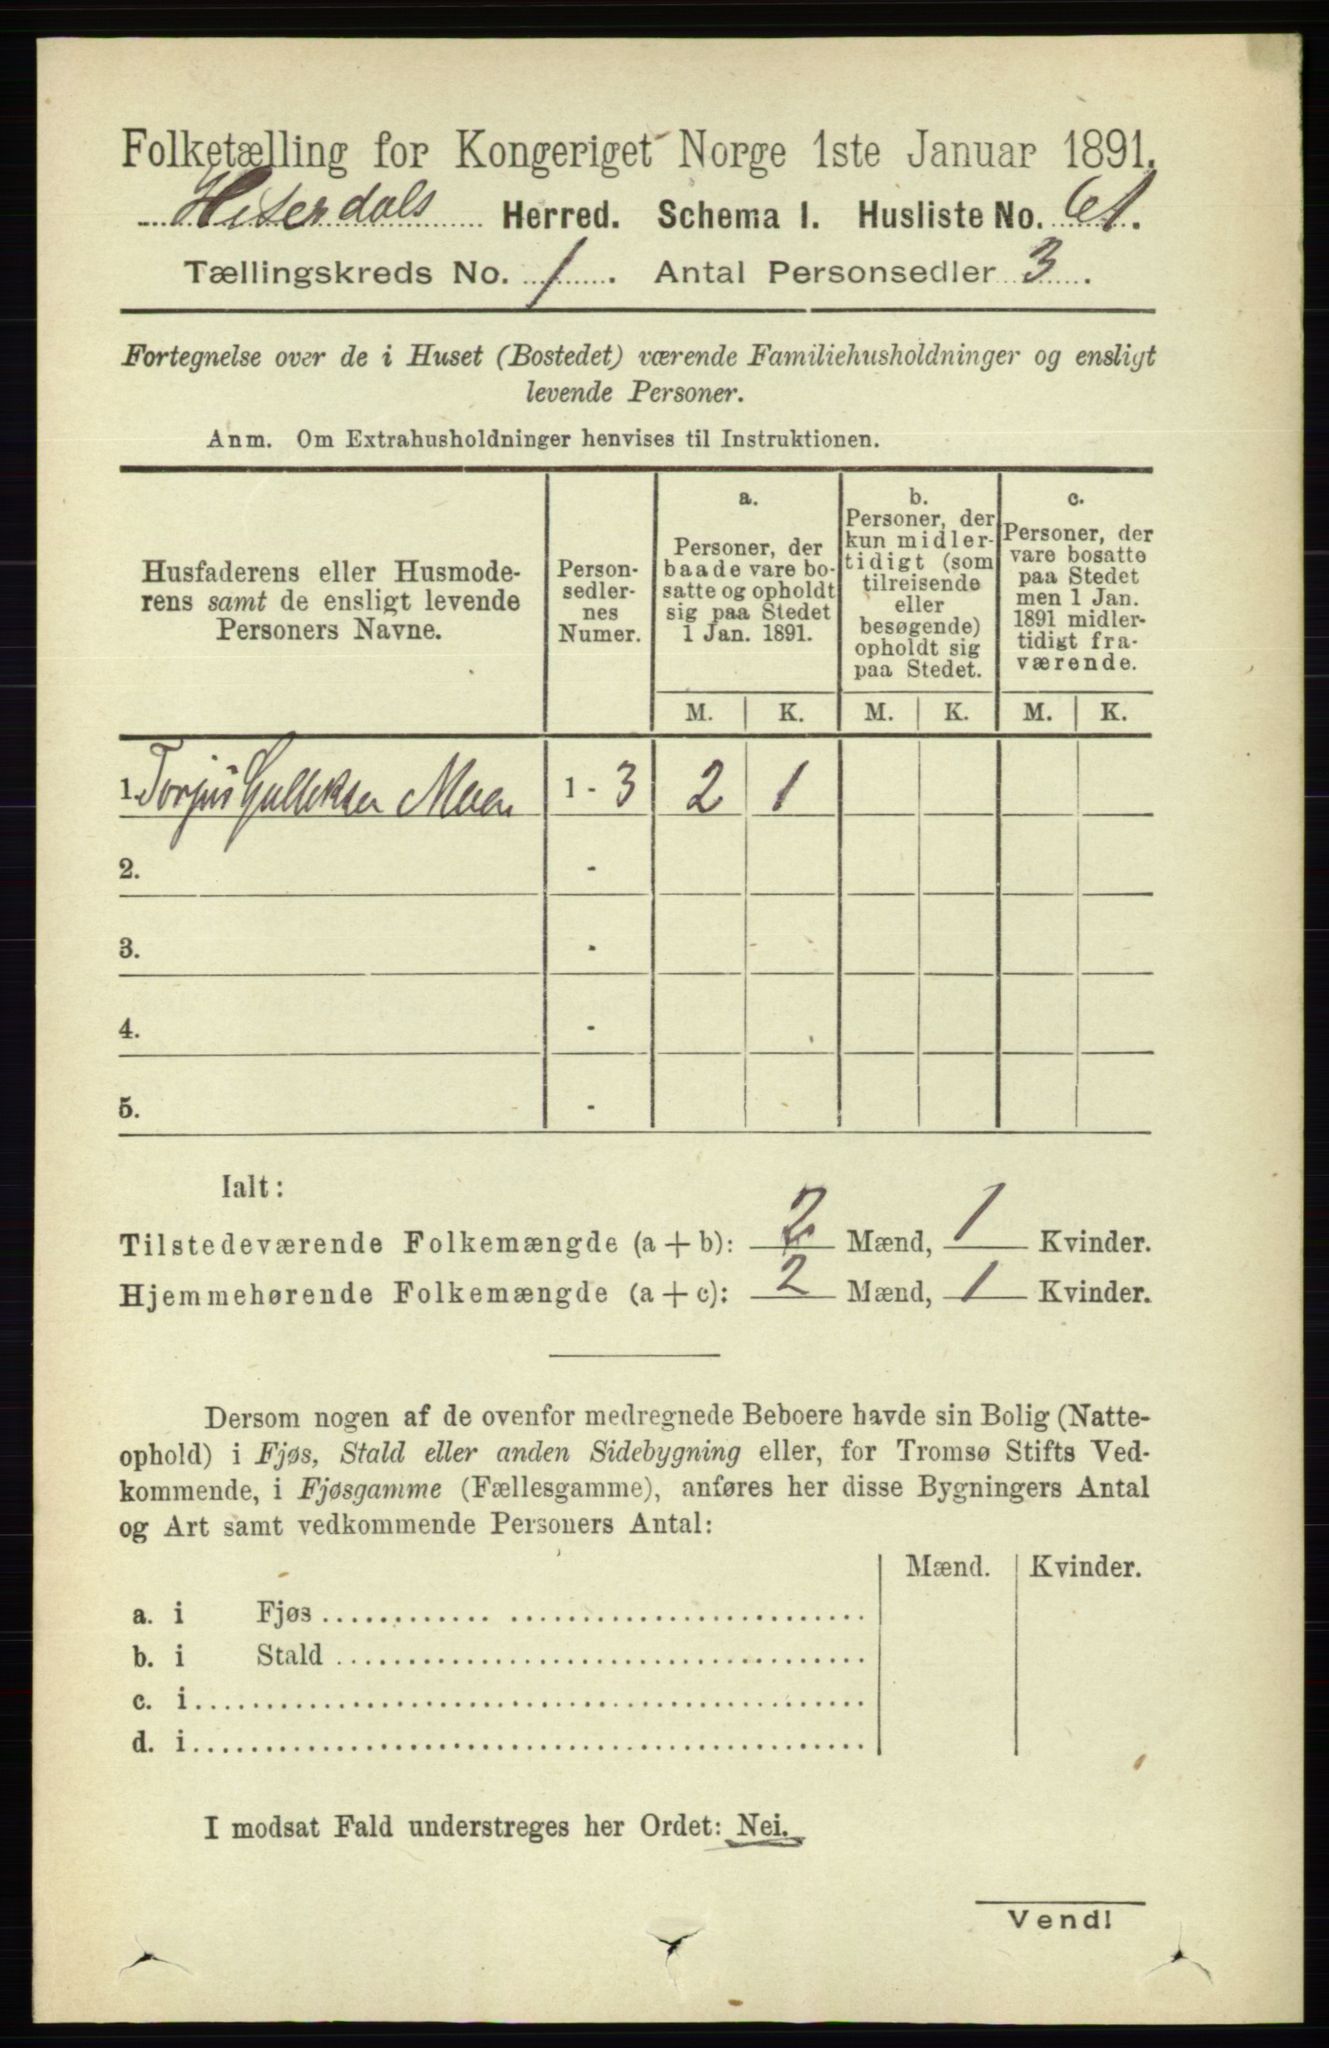 Folketælling for Kongeriget Norge 1ste Januar 1891.
Hiterdals Herred. Schema I. Husliste No. 61.
Tællingskreds No. 1. Antal Personsedler 3.
Fortegnelse over de i Huset (Bostedet) værende Familiehusholdninger og ensligt
levende Personer.
Anm. Om Extrahusholdninger henvises til Instruktionen.
Husfaderens eller Husmode-
rens samt de ensligt levende
Personers Navne.
Person-
sedler-
nes
Numer.
a.
Personer, der
baade vare bo-
satte og opholdt
sig paa Stedet
1 Jan. 1891.
b.
Personer, der
kun midler-
tidigt (som
tilreisende
eller
besøgende)
opholdt sig
paa Stedet.
c.
Personer, der
vare bosatte
paa Stedet
men 1 Jan.
1891 midler-
tidigt fra-
værende.
M. K. M. K. M. K.
1. Torjus Gulleksen Moen 1 - 3 2 1
2. -
3. -
4. -
5. -
Ialt:
Tilstedeværende Folkemængde (a + b): 2 Mænd, 1 Kvinder.
Hjemmehørende Folkemængde (a + c): 2 Mænd, 1 Kvinder.
Dersom nogen af de ovenfor medregnede Beboere havde sin Bolig (Natte-
ophold) i Fjøs, Stald eller anden Sidebygning eller, for Tromsø Stifts Ved-
kommende, i Fjøsgamme (Fællesgamme), anføres her disse Bygningers Antal
og Art samt vedkommende Personers Antal:
Mænd. Kvinder.
a. i Fjøs
b. i Stald
c. i
d. i
I modsat Fald understreges her Ordet: Nei.
Vend!